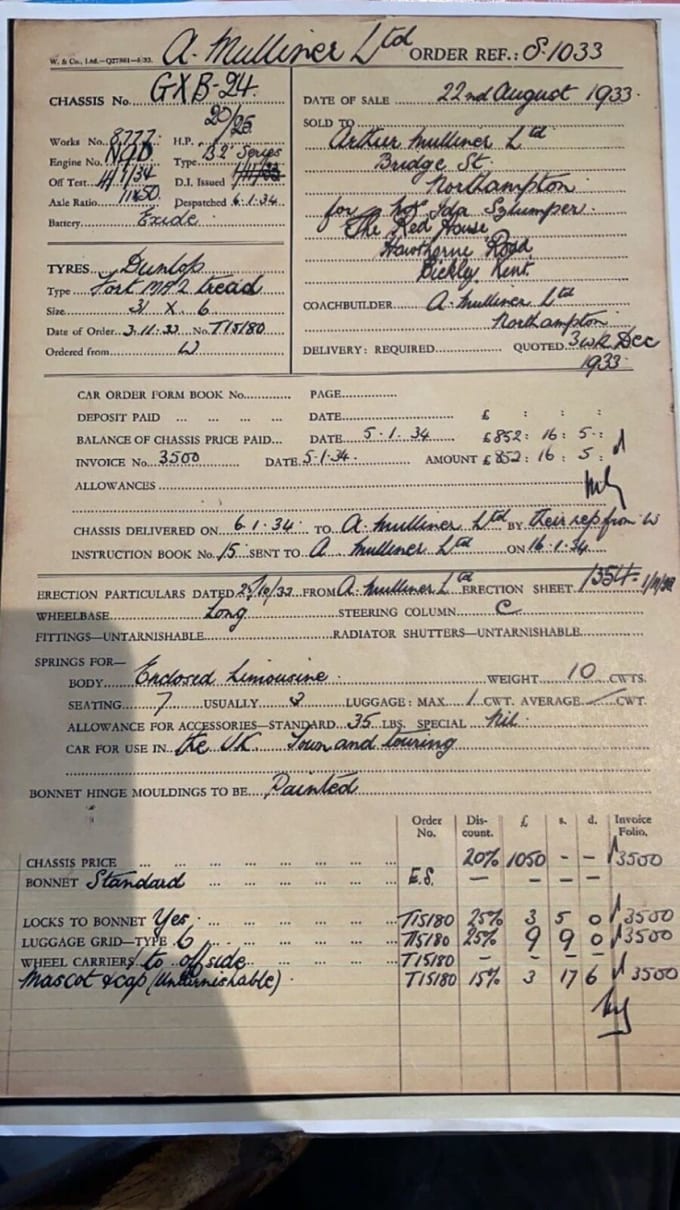 W. & Co., Ltd.—Q27861—5/33. A. Mulliner Ltd ORDER REF.: S.1033
CHASSIS No. GXB-24.
20/25
Works No. 8777 H.P.
Engine No. Type B2 Series
Off Test D.I. Issued
Axle Ratio 11x50 Despatched 6.1.34
Battery Exide
DATE OF SALE 22nd August 1933.
SOLD TO Arthur Mulliner Ltd
Bridge St.
Northampton
for Ida Szlumper.
The Red House
Hawthorne Road
Bickley. Kent.
COACHBUILDER A. Mulliner Ltd
Northampton
DELIVERY: REQUIRED QUOTED 3 wk Dec
1933.
TYRES Dunlop
Type Fort tread
Size 31 X 6
Date of Order 3.11.33 No. T15180
Ordered from W
CAR ORDER FORM BOOK No. PAGE
DEPOSIT PAID ... ... ... ... DATE £ : :
BALANCE OF CHASSIS PRICE PAID... DATE 5.1.34 £852: 16: 5.:
INVOICE No. 3500 DATE 5.1.34. AMOUNT £852: 16: 5:
ALLOWANCES
CHASSIS DELIVERED ON 6.1.34. TO A. Mulliner Ltd BY their rep from W
INSTRUCTION BOOK No. 15 SENT TO A Mulliner Ltd ON 16.1.34
ERECTION PARTICULARS DATED 25/10/33 FROM A. Mulliner Ltd ERECTION SHEET
WHEELBASE Long STEERING COLUMN C
FITTINGS—UNTARNISHABLE RADIATOR SHUTTERS—UNTARNISHABLE
SPRINGS FOR—
BODY Enclosed Limousine. WEIGHT 10 CWTS.
SEATING 7 USUALLY LUGGAGE: MAX. 1 CWT. AVERAGE — CWT.
ALLOWANCE FOR ACCESSORIES—STANDARD 35 LBS. SPECIAL Nil.
CAR FOR USE IN the UK Town and touring
BONNET HINGE MOULDINGS TO BE Painted
Order No. Discount. £ s. d. Invoice Folio.
CHASSIS PRICE ... ... ... ... ... ... ... 20% 1050 - - 3500
BONNET Standard ... ... ... ... ... E.S. — — — —
LOCKS TO BONNET Yes. ... ... ... ... ... T15180 25% 3 5 0 3500
LUGGAGE GRID—TYPE 6 ... ... ... ... ... T15180 25% 9 9 0 3500
WHEEL CARRIERS to off side ... ... ... ... T15180 — - - -
Mascot & cap (Untarnishable) T15180 15% 3 17 6 3500